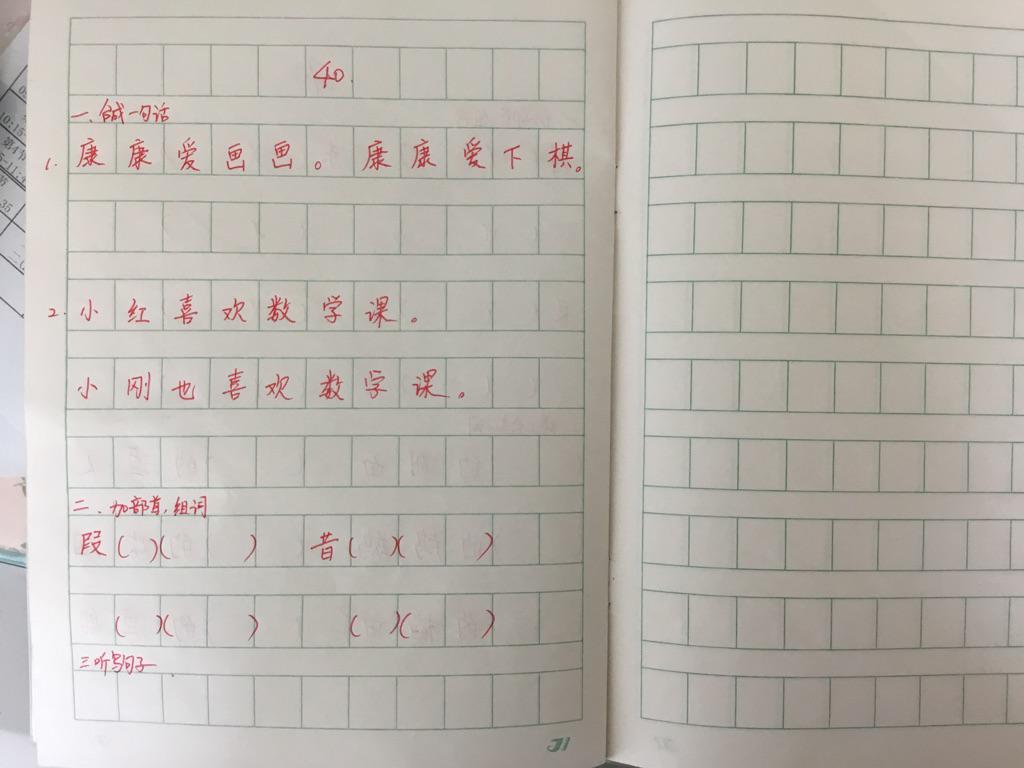 40.
一、合成一句话
1. 康康爱画画。康康爱下棋。
2. 小红喜欢数学课。
小刚也喜欢数学课。
二、加部首，组词
叚( )( ) 昔( )( )
( )( ) ( )( )
三、听写句子